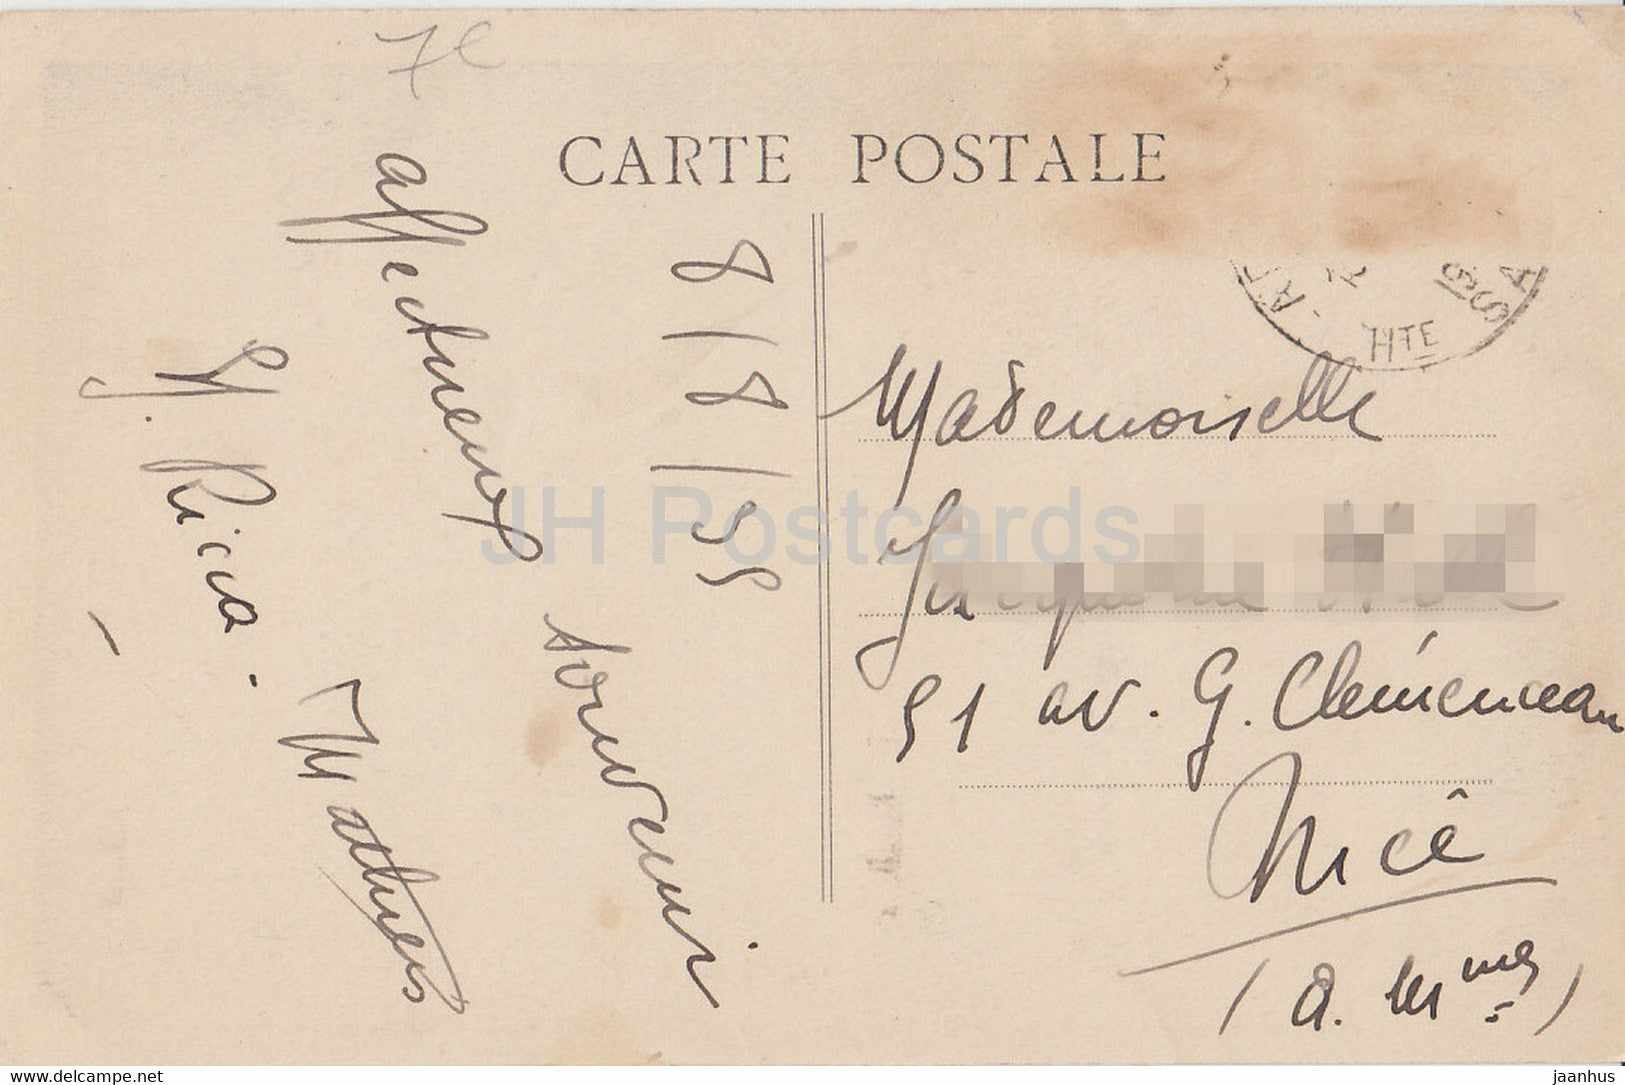 7e
CARTE POSTALE
8/8/35
affectueux souvenir
Mathieu
Mademoiselle
51 av. G. Clémenceau
Nice
(A. Mmes)
HTE
JH Postcards
delcampe.net
jaanhus